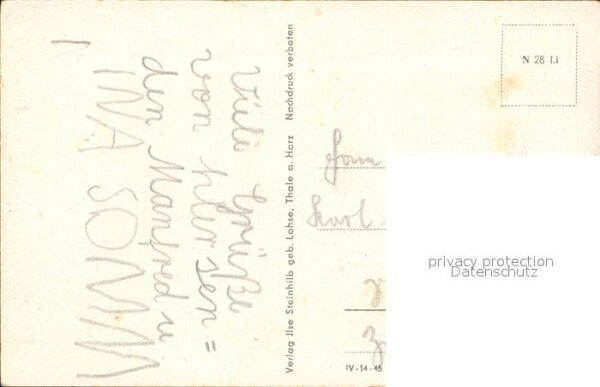 Viele Grüße
von hier sen=
den Manfred u
INA SOMM
Verlag Jlse Steinhilb geb. Lohse, Thale a. Harz Nachdruck verboten
N 28 Li
Karl
privacy protection
Datenschutz
IV-14-45